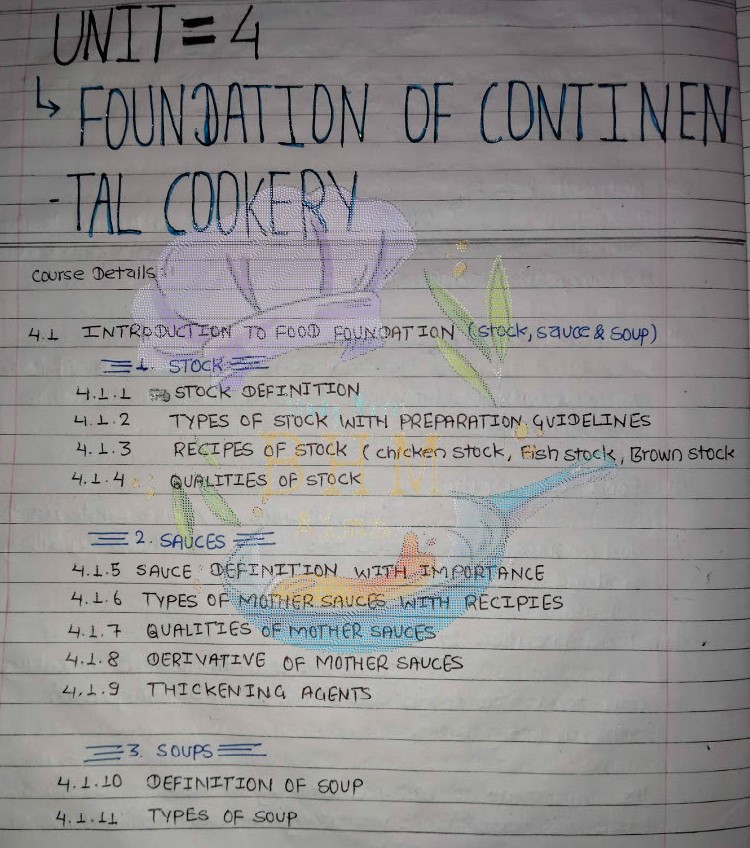 UNIT = 4
↳ FOUNDATION OF CONTINEN
-TAL COOKERY
Course Details:
4.1 INTRODUCTION TO FOOD FOUNDATION (stock, sauce & soup)
1. STOCK
4.1.1 STOCK DEFINITION
4.1.2 TYPES OF STOCK WITH PREPARATION GUIDELINES
4.1.3 RECIPES OF STOCK ( chicken stock, Fish stock, Brown stock
4.1.4 QUALITIES OF STOCK
BHM
2. SAUCES
4.1.5 SAUCE DEFINITION WITH IMPORTANCE
4.1.6 TYPES OF MOTHER SAUCES WITH RECIPIES
4.1.7 QUALITIES OF MOTHER SAUCES
4.1.8 DERIVATIVE OF MOTHER SAUCES
4.1.9 THICKENING AGENTS
3. SOUPS
4.1.10 DEFINITION OF SOUP
4.1.11 TYPES OF SOUP